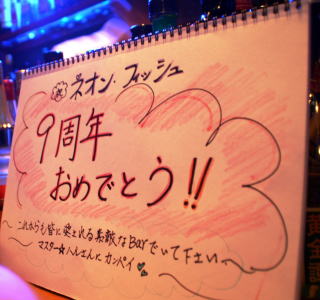 祝 ネオン・フィッシュ
9周年
おめでとう!!
〜これからも皆に愛される素敵なBarでいて下さい。〜
マスター☆ハルさんに カンパイ♥